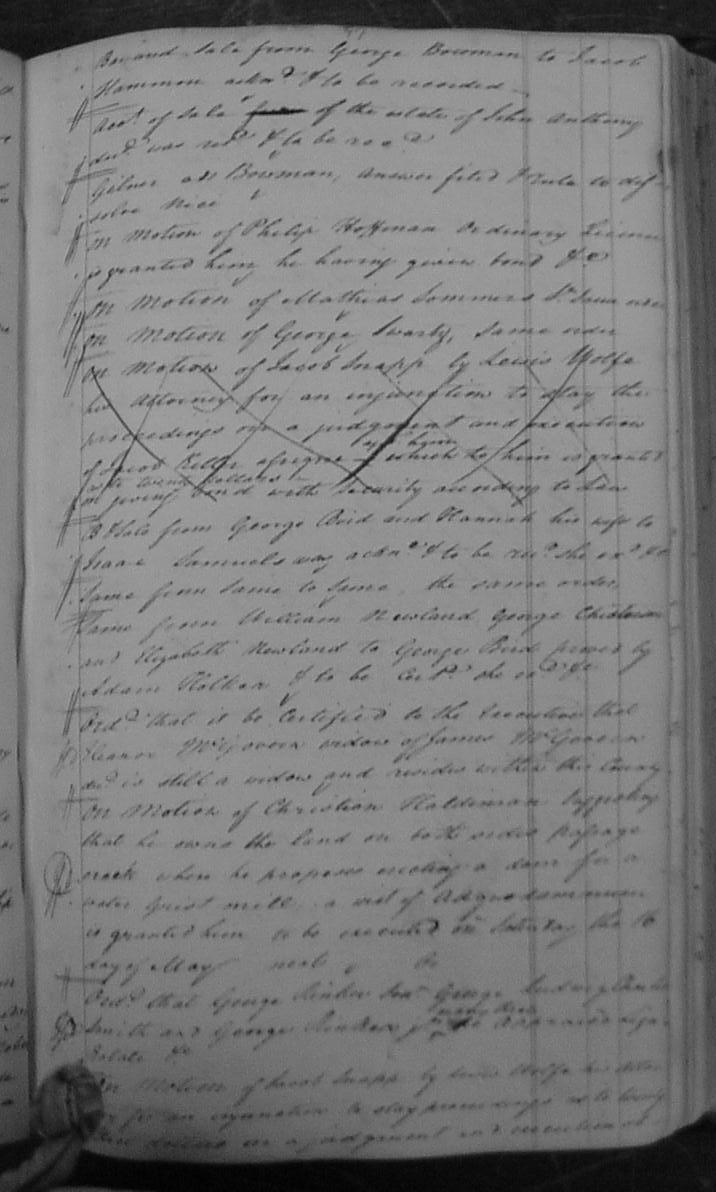 B and Sale from George Bowman to Jacob
Hammon ackn.d & to be recorded
Acct. of Sale of the estate of John Anthony
decd. was red. & to be recd
Gilner ads Bowman, answer filed & rule to dis-
solve nice
On Motion of Philip Hoffman Ordinary License
is granted him he having given bond &c
On Motion of Mathias Sommers Sr. Same order
On Motion of George Swartz, Same order
On Motion of Jacob Snapp by Lewis Wolfe
his Attorney for an injunction to stay the
proceedings on a judgment and execution
of Jacob Keller which to him is granted
on giving bond with Security according to Law
B & Sale from George Bird and Hannah his wife to
Isaac Samuels was ackn.d & to be rec.d she ex.d &c
Same from Same to Same, the same order
Same from William Newland George
and Elizabeth Newland to George Bird proved by
Adam & to be Cert.d she ex.d &c
Ord.d that it be Certified to the Executive that
Eleanor McGovern widow of James McGovern
decd. is still a widow and resides within this County
On Motion of Christian Haldiman Suggesting
that he owns the land on both sides passage
creek where he proposes erecting a dam for a
water Grist mill, a writ of Adquodamnum
is granted him to be executed on Saturday the 16
day of May next
Ord.d that George Rinker Sen.r George
Smith and George Rinker Appraise
Estate &c
On Motion of Jacob Snapp by Lewis Wolfe his Attor
for an injunction to stay proceedings as to twenty
dollars on a judgment and execution of